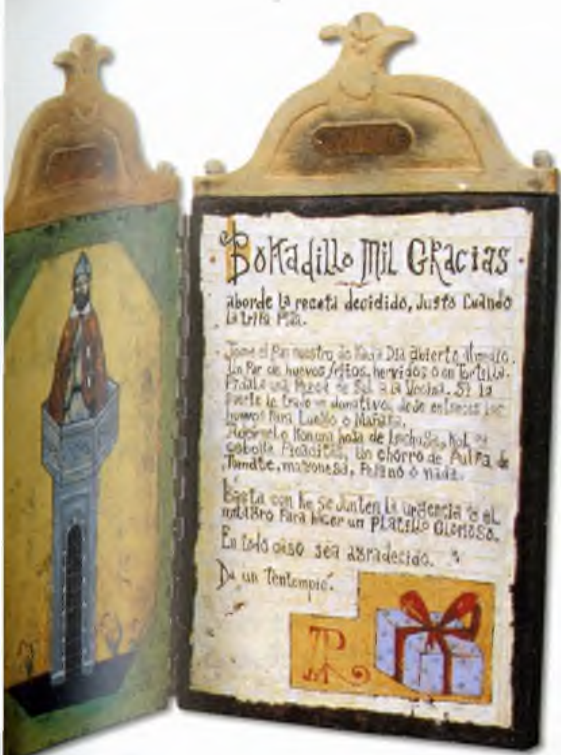 Bokadillo Mil Gracias
aborde la receta decidido, Justo Cuando
la tripa Pida.
Tome el Pan nuestro de Kada Dia abierto al medio.
Un Par de huevos fritos, hervidos o en Tortilla.
Pidale una de Sal a la Vecina. Si la
suerte le trajo un donativo, deje entonces los
huevos Para Luego o Mañana.
Kon una hoja de Lechuga, Kol
cebolla Picaditas, un chorro de Pulpa de
Tomate, mayonesa, Pepino o nada.
Basta con ke se Junten la urgencia y el
milagro Para hacer un PLatillo GLorioso.
En todo caso sea agradecido.
Da un Tentempié.